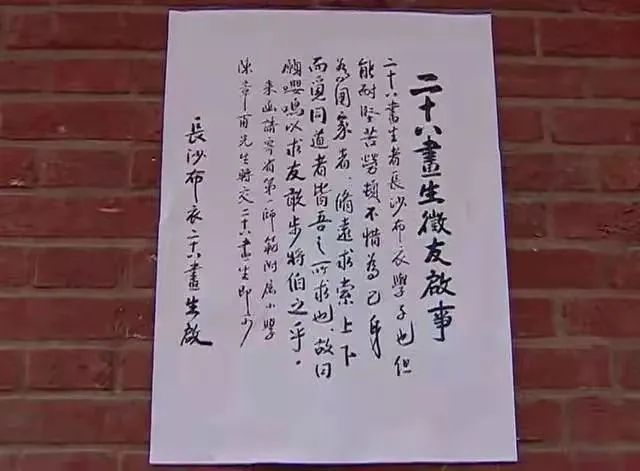 二十八畫生徵友啟事
二十八畫生者長沙布衣學子也但
能耐堅苦勞頓不惜為己身
為國家者、脩遠求索上下
而覓同道者皆吾之所求也、故曰
願嚶鳴以求友敢步將伯之乎。
來函請寄省第一師範附属小學
陳章甫先生轉交二十八畫生即可
長沙布衣二十八畫生啟